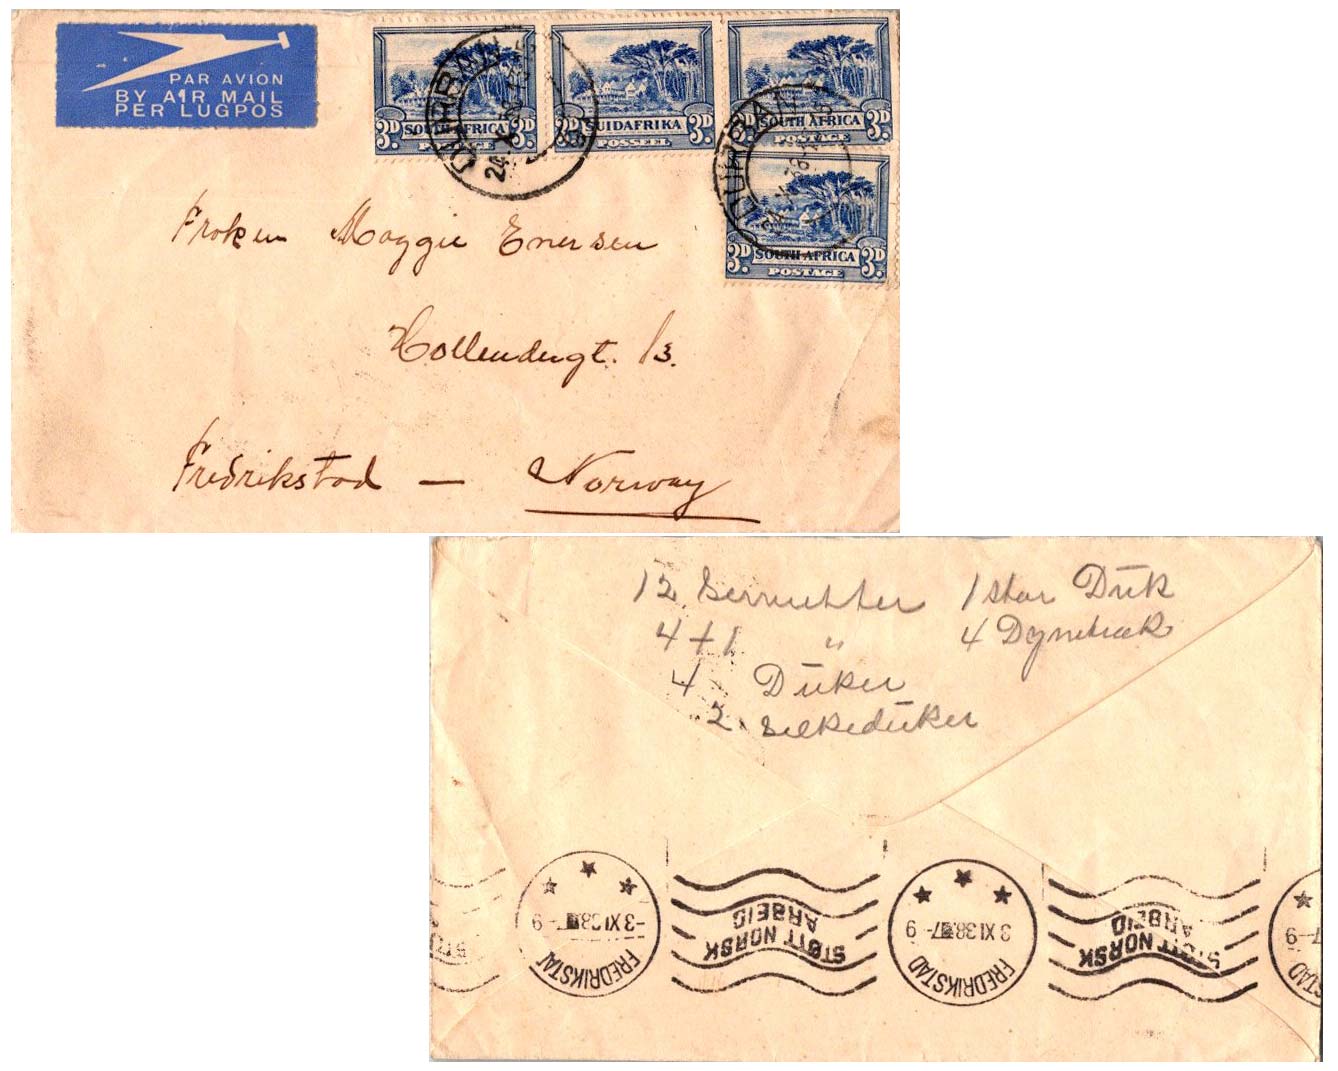 PAR AVION
BY AIR MAIL
PER LUGPOS
3D SOUTH AFRICA 3D
POSTAGE
3D SUIDAFRIKA 3D
POSSEEL
3D SOUTH AFRICA 3D
POSTAGE
3D. SOUTH AFRICA 3D.
POSTAGE
DURBAN
DURBAN
Froken Maggie Enersen
Hollendergt. 13.
Fredrikstad — Norway
12 Servietter 1 stor Duk
4+1 " 4 Dynetræk
4 Duker
2 silkeduker
FREDRIKSTAD
-3 XI 38 7-9
STØTT NORSK
ARBEID
FREDRIKSTAD
3 XI 38 7-9
STØTT NORSK
ARBEID
STAD
7-9